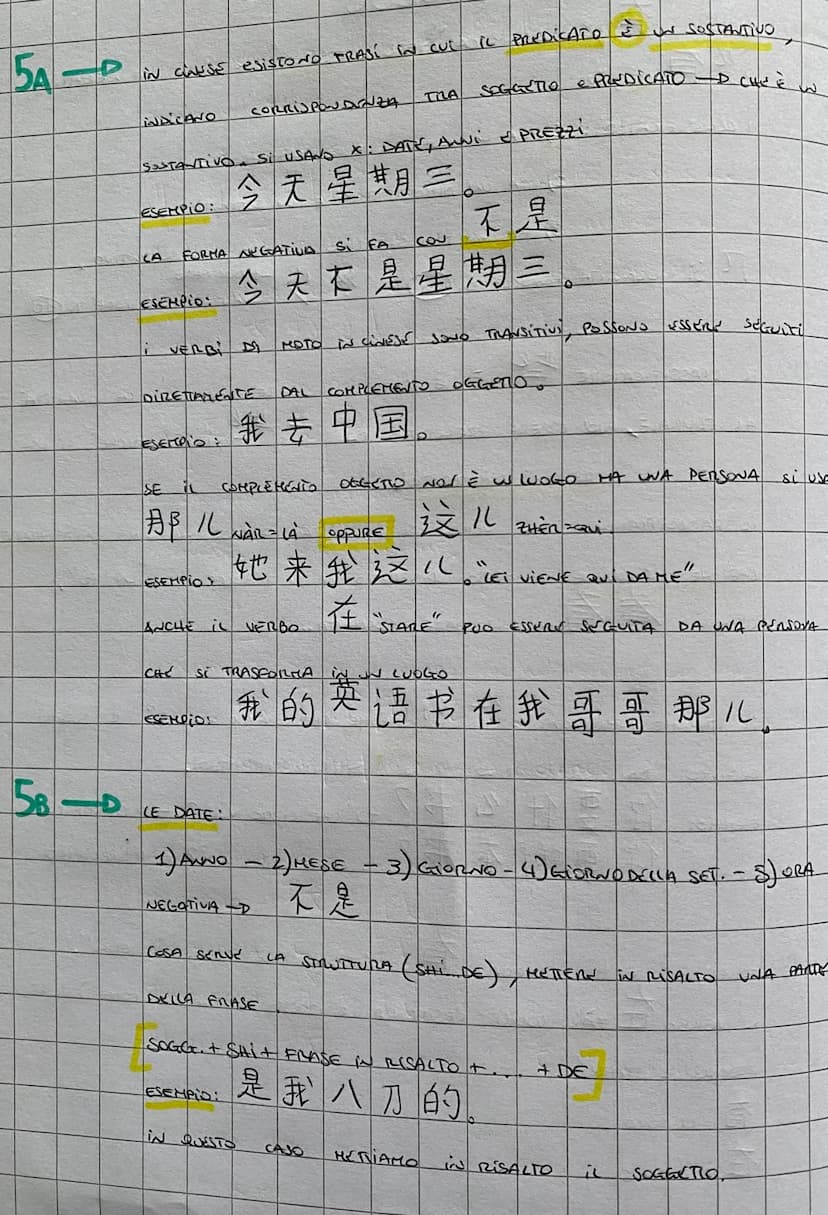 5A → IN CINESE ESISTONO FRASI IN CUI IL PREDICATO È UN SOSTANTIVO,
INDICANO CORRISPONDENZA TRA SOGGETTO E PREDICATO → CHE È UN
SOSTANTIVO. SI USANO X: DATE, ANNI E PREZZI
ESEMPIO: 今天星期三。
LA FORMA NEGATIVA SI FA CON 不是
ESEMPIO: 今天不是星期三。
I VERBI DI MOTO IN CINESE SONO TRANSITIVI, POSSONO ESSERE SEGUITI
DIRETTAMENTE DAL COMPLEMENTO OGGETTO.
ESEMPIO: 我去中国。
SE IL COMPLEMENTO OGGETTO NON È UN LUOGO MA UNA PERSONA SI USA
那儿 NÀR=LÀ OPPURE 这儿 ZHÈR=QUI
ESEMPIO: 她来我这儿。"LEI VIENE QUI DA ME"
ANCHE IL VERBO 在 "STARE" PUO ESSERE SEGUITA DA UNA PERSONA
CHE SI TRASFORMA IN UN LUOGO
ESEMPIO: 我的英语书在我哥哥那儿。
5B → LE DATE:
1) ANNO - 2) MESE - 3) GIORNO - 4) GIORNO DELLA SET. - 5) ORA
NEGATIVA → 不是
COSA SERVE LA STRUTTURA (SHI...DE), METTERE IN RISALTO UNA PARTE
DELLA FRASE.
[SOGG. + SHI + FRASE IN RISALTO + ... + DE]
ESEMPIO: 是我八刀的。
IN QUESTO CASO METTIAMO IN RISALTO IL SOGGETTO.